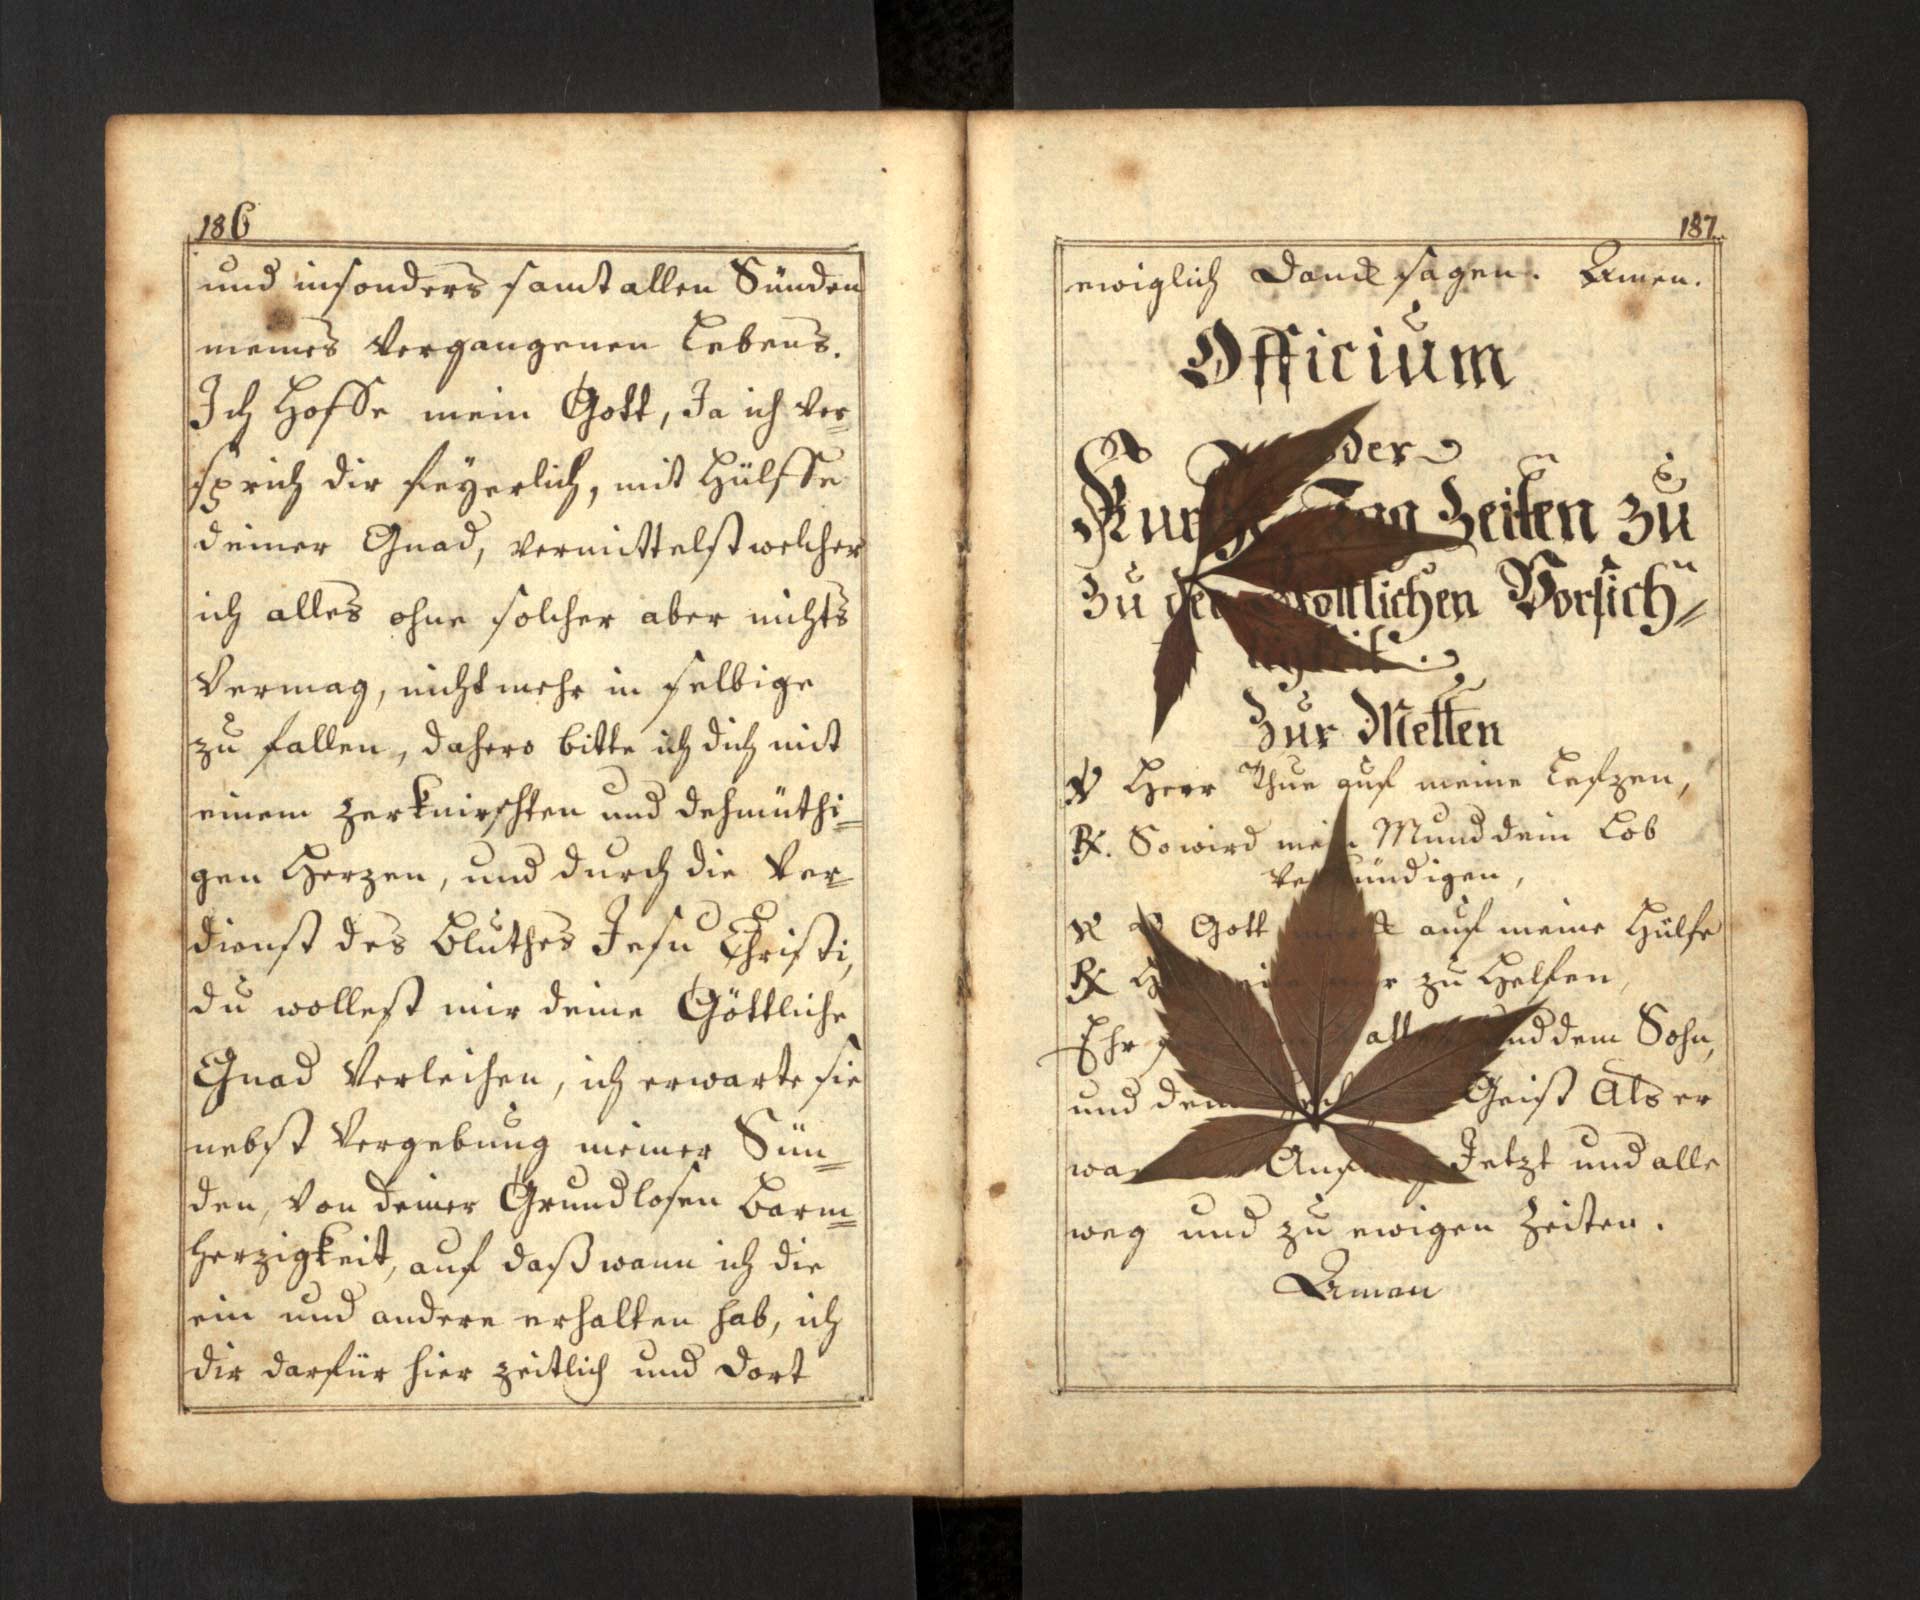 186
und insonders samt allen Sünden
meines vergangenen Lebens.
Ich Hoffe mein Gott, Ja ich ver=
sprich dir feyerlich, mit Hülffe
deiner Gnad, vermittelst welcher
ich alles ohne solcher aber nichts
Vermag, nicht mehr in selbige
zu fallen, dahero bitte ich dich mit
einem zerknirschten und dehmüthi=
gen Herzen, und durch die Ver=
dienst des Bluthes Jesu Christi,
du wollest mir deine Göttliche
Gnad Verleihen, ich erwarte sie
nebst Vergebung meiner Sün=
den, von deiner Grundlosen Barm=
herzigkeit, auf daß wann ich die
ein und andere erhalten hab, ich
dir darfür hier zeitlich und Dort
187
ewiglich Dank sagen. Amen.
Officium
der
Zeiten zu
zu Göttlichen Vorsich=
Zur Metten
V Herr Thue auf meine Lefzen,
R. So wird mein Mund dein Lob
verkündigen,
V O Gott auf meine Hülfe
R zu Helfen,
Ehr und dem Sohn,
und dem Geist Als er
war Anfang Jetzt und alle
weg und zu ewigen Zeiten.
Amen